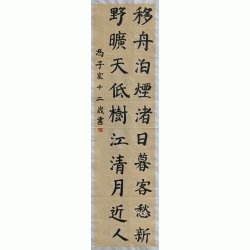 移舟泊煙渚日暮客愁新
野曠天低樹江清月近人
馮子宜十二歲書